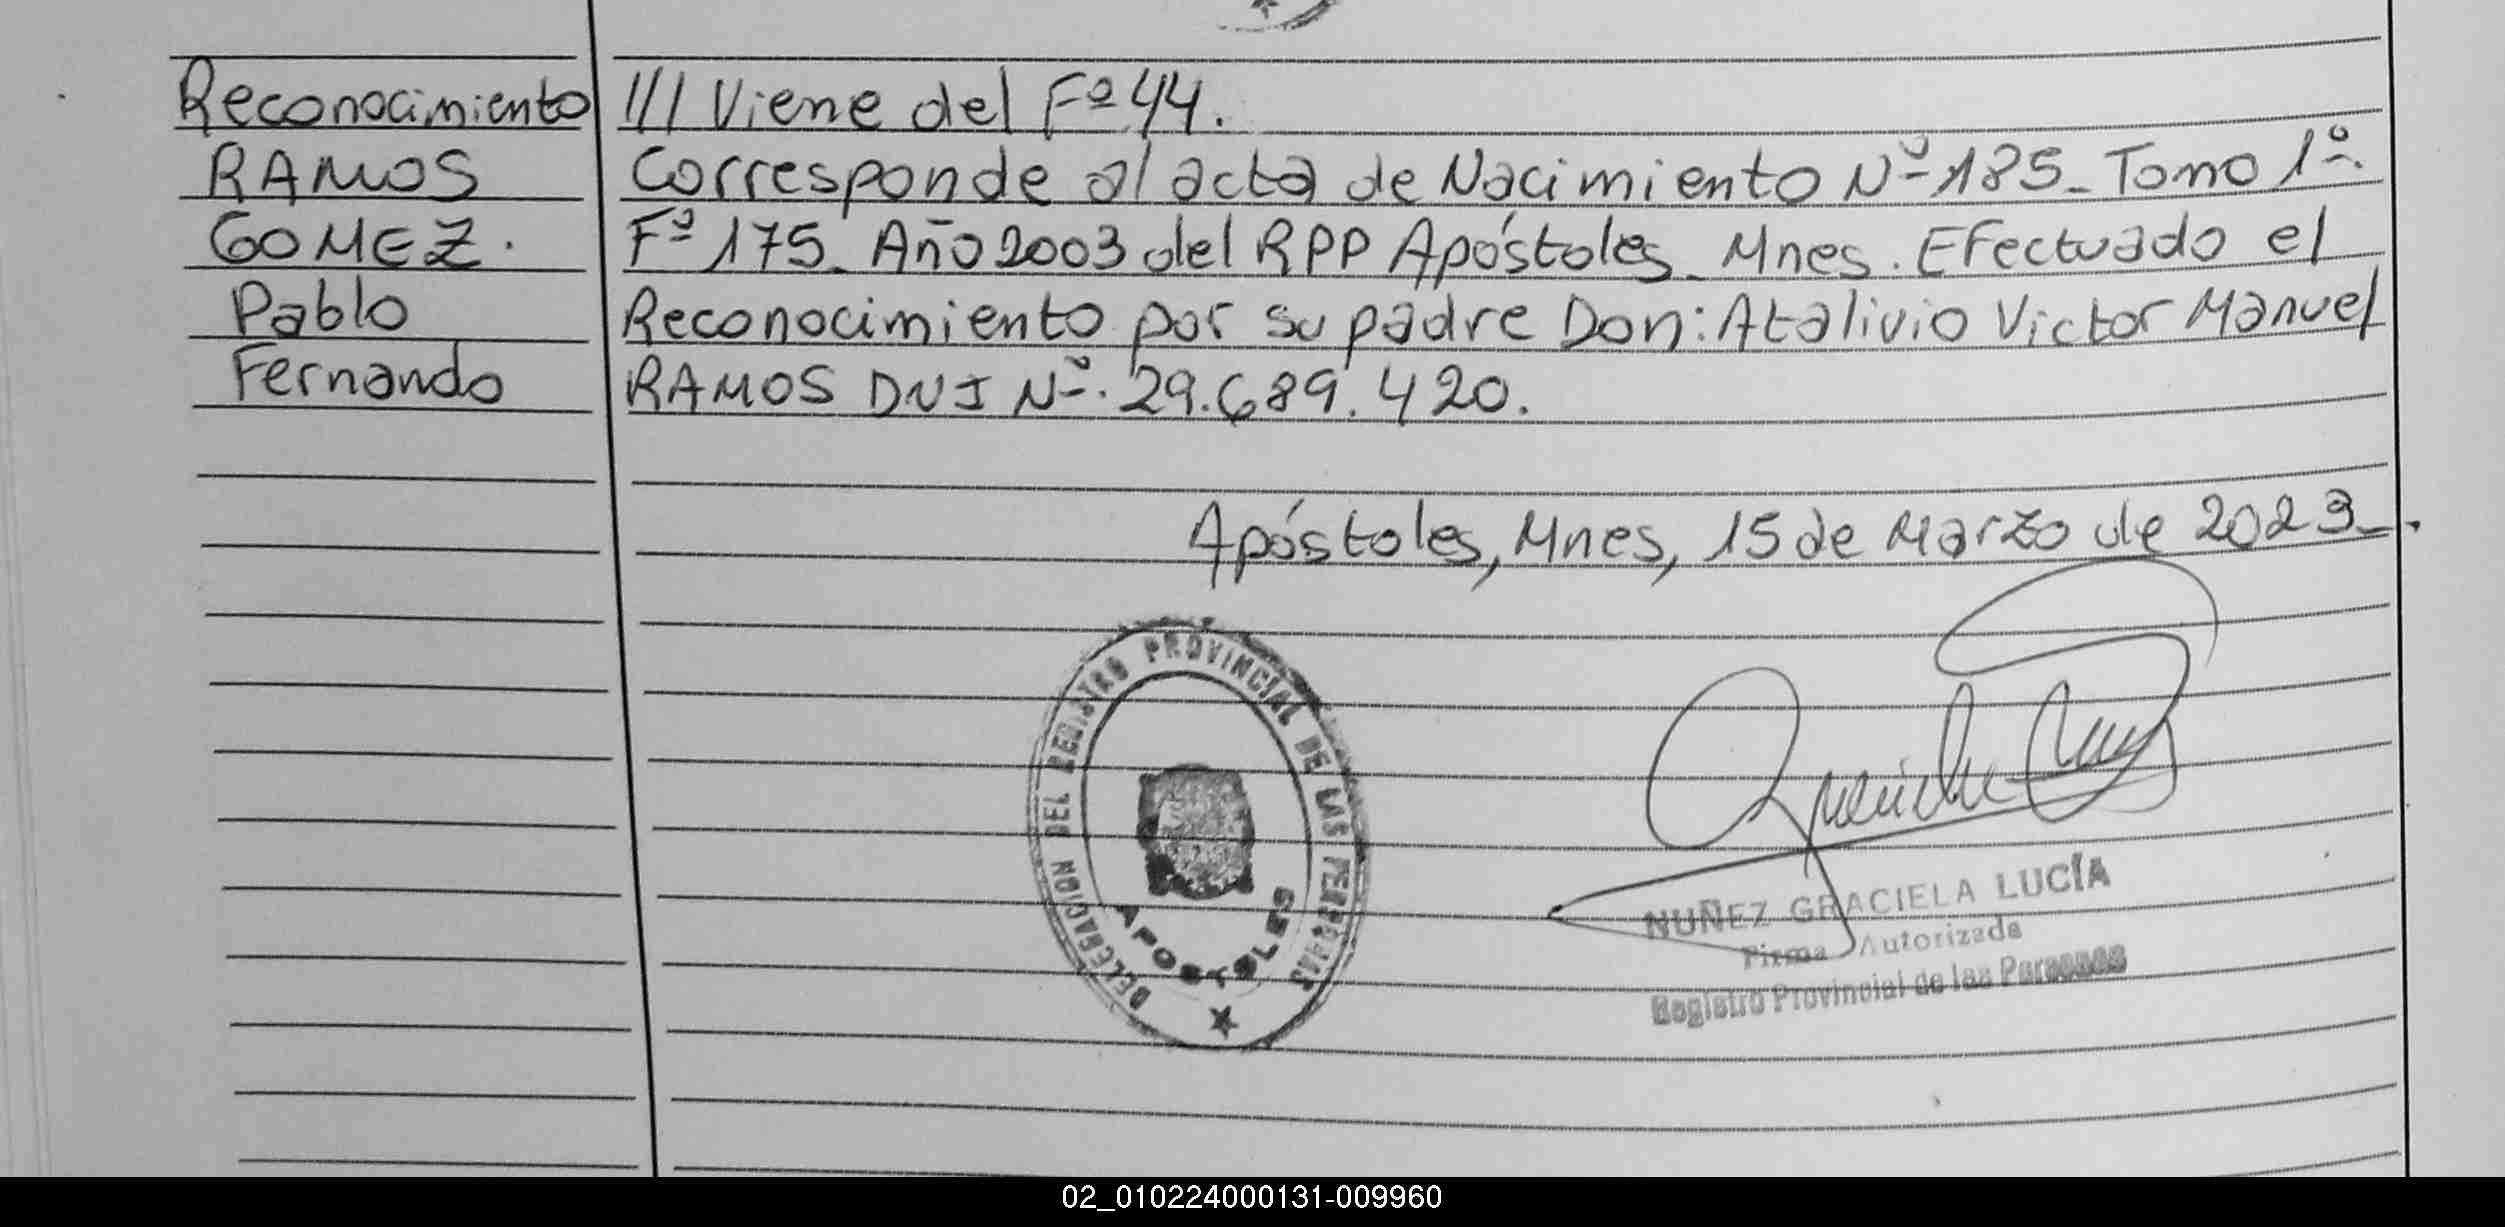 Reconocimiento
RAMOS
GOMEZ.
Pablo
Fernando
/// Viene del Fº 44.
Corresponde al acta de Nacimiento Nº 185_ Tomo 1º.
Fº 175_ Año 2003 del RPP Apóstoles_ Mnes. Efectuado el
Reconocimiento por su padre Don: Atalivio Victor Manuel
RAMOS DNI Nº. 29.689.420.
Apóstoles, Mnes, 15 de Marzo de 2023_.
DELEGACION DEL REGISTRO PROVINCIAL DE LAS PERSONAS
APOSTOLES
NUÑEZ GRACIELA LUCÍA
Firma Autorizada
Registro Provincial de las Personas
02_010224000131-009960